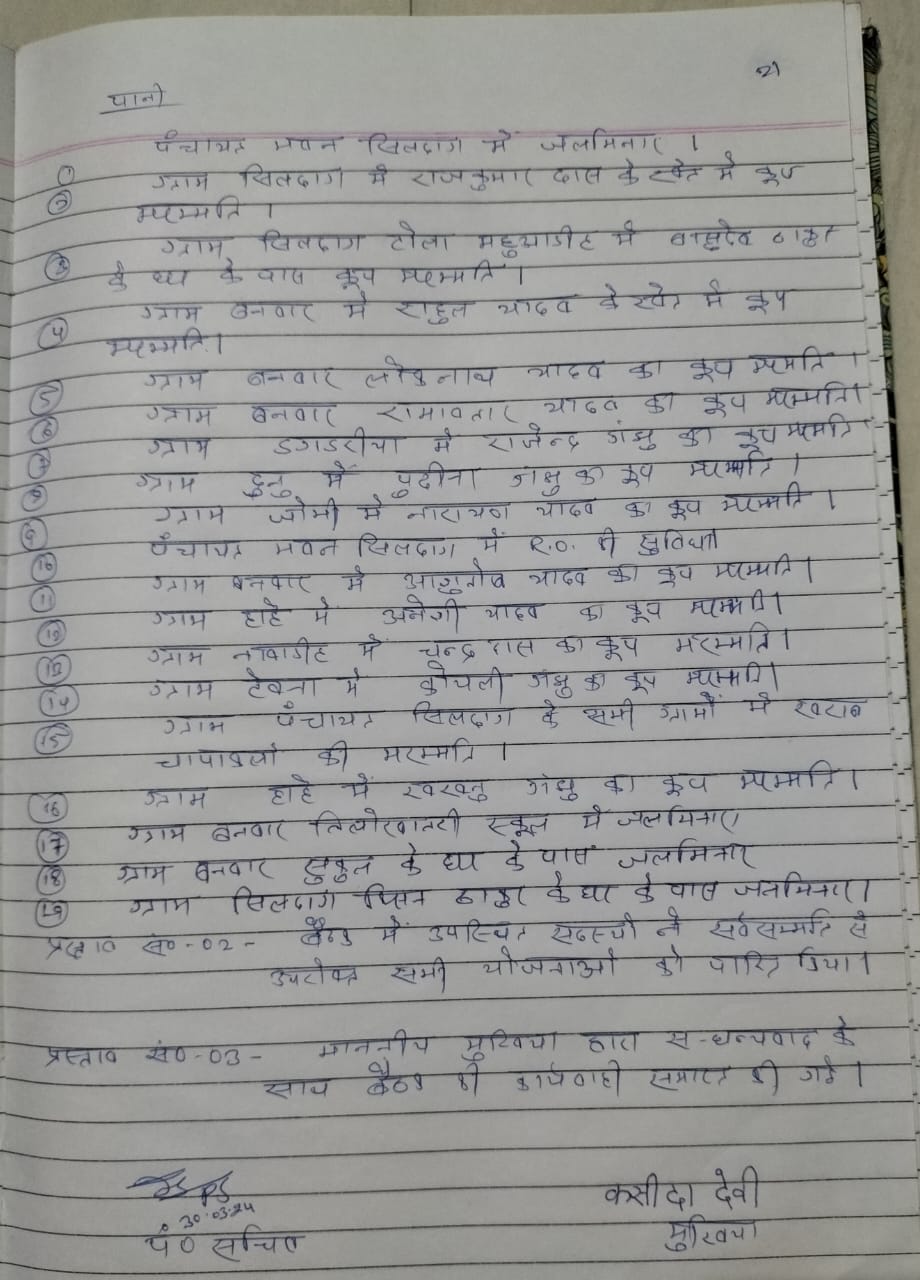 21
पानी
① पंचायत भवन सिलदाग में जलमिनार ।
② ग्राम सिलदाग में राजकुमार दास के खेत में कूप
मरम्मति ।
③ ग्राम सिलदाग टोला महुआडीह में बासुदेव ठाकुर
के घर के पास कूप मरम्मति ।
④ ग्राम बनवार में राहुल यादव के खेत में कूप
मरम्मति ।
⑤ ग्राम बनवार लोकनाथ यादव का कूप मरम्मति ।
⑥ ग्राम बनवार रामावतार यादव का कूप मरम्मति ।
⑦ ग्राम डगडरीया में राजेन्द्र गंझु का कूप मरम्मति
⑧ ग्राम हुनु में पुदीना गंझु का कूप मरम्मति ।
⑨ ग्राम जोमी में नारायण यादव का कूप मरम्मति ।
⑩ पंचायत भवन सिलदाग में R.O. की सुविधा
⑪ ग्राम बनवार में आशुतोष यादव का कूप मरम्मति ।
⑫ ग्राम हाहे में यादव का कूप मरम्मति ।
⑬ ग्राम नावाडीह में चन्द्र दास का कूप मरम्मति ।
⑭ ग्राम टेवना में कोयली गंझु का कूप मरम्मति ।
⑮ ग्राम पंचायत सिलदाग के सभी ग्रामों में खराब
चापाकलों की मरम्मति ।
⑯ ग्राम हाहे में गंझु का कूप मरम्मति ।
⑰ ग्राम बनवार स्कूल में जलमिनार
⑱ ग्राम बनवार के घर के पास जलमिनार
⑲ ग्राम सिलदाग ठाकुर के घर के पास जलमिनार ।
प्रस्ताव सं०-02- बैठक में उपस्थित सदस्यों ने सर्वसम्मति से
उपरोक्त सभी योजनाओं को पारित किया ।
प्रस्ताव सं०-03- माननीय मुखिया द्वारा स-धन्यवाद के
साथ बैठक की कार्यवाही समाप्त की गई ।
30.03.24
पं० सचिव
कसीदा देवी
मुखिया